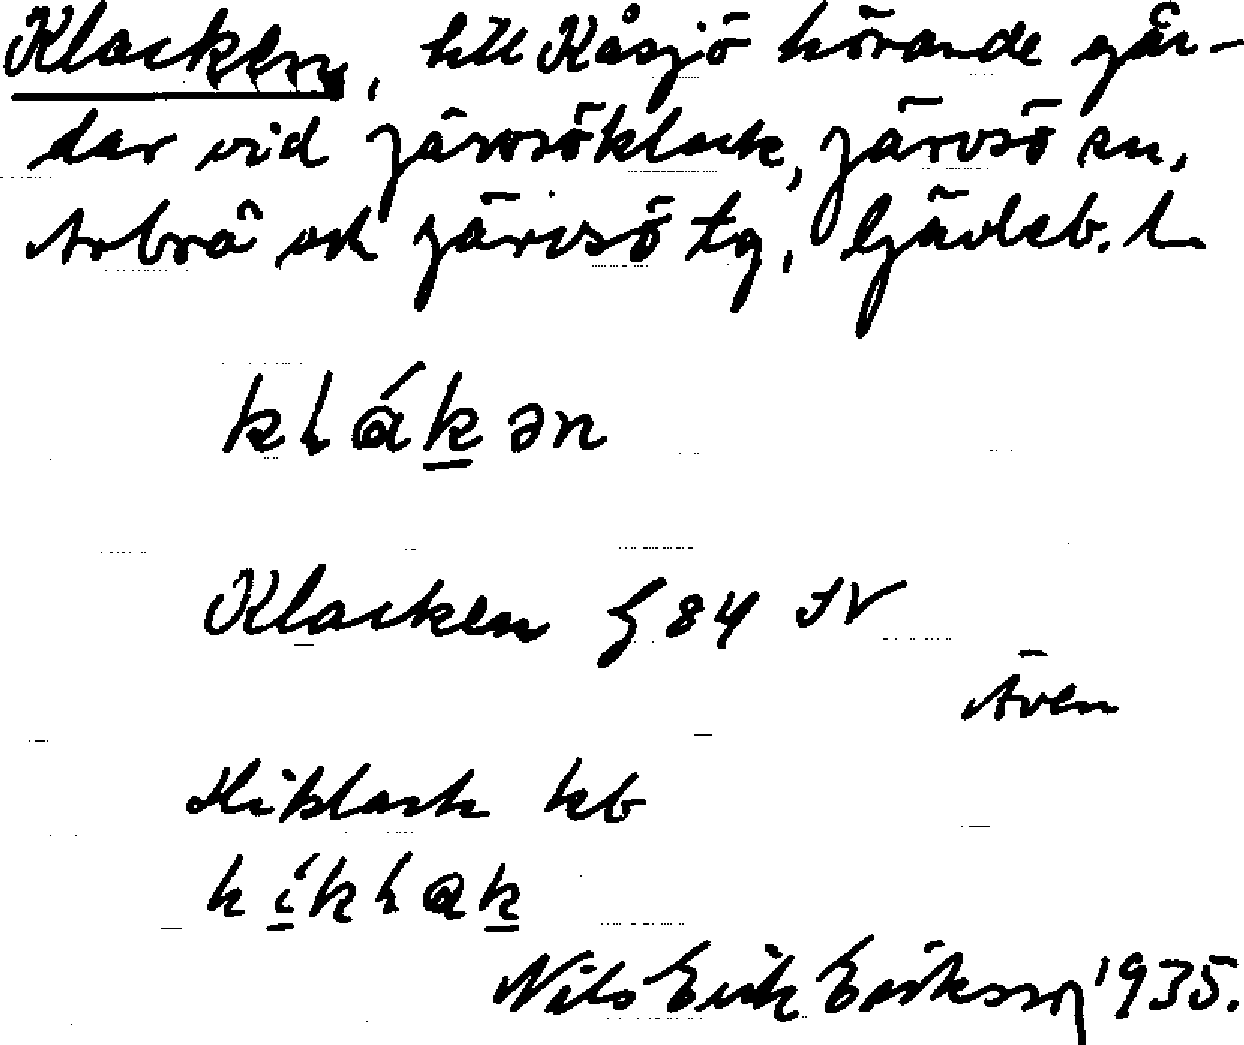 Klacken, till Kåsjö hörande går-
dar vid Järvsöklack, Järvsö sn,
Arbrå och Järvsö tg, Gävleb. l.
klákən
Klacken § 84 IV
Även
Hiklack kb
híklak
Nils Erik Eriksson 1935.